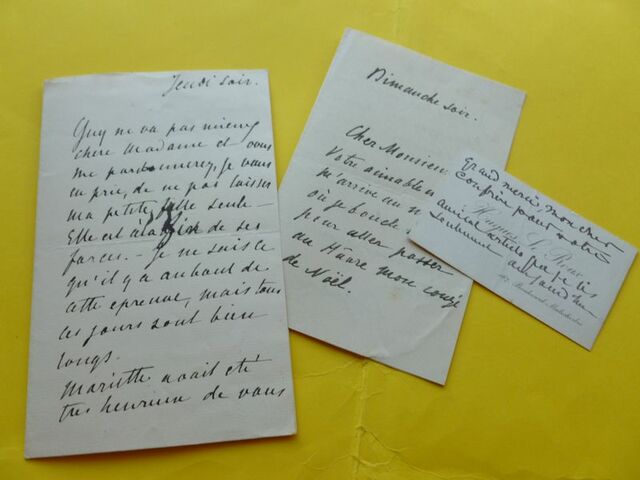 Jeudi soir.
Guy ne va pas mieux
chère Madame et vous
me pardonnerez, je vous
en prie, de ne pas laisser
ma petite fille seule —
Elle est à la fin de ses
forces. — Je ne sais ce
qu'il y a au bout de
cette épreuve, mais tous
ces jours sont bien
longs.
Mariette avait été
très heureuse de vous
Dimanche soir.
Cher Monsieur
Votre aimable
m'arrive au
où je boucle
pour aller passer
au Hâvre mon congé
de Noël.
Grand merci, mon cher
Confrère pour votre
amical article que je lis
Hugues Le Roux
aujourd'hui
Boulevard Malesherbes